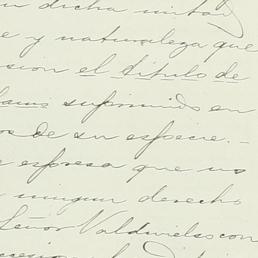 dicha mitad
e y naturaleza que
sion el título de
suprimido en
os de su especie. -
e espresa que no
ningun derecho
Señor Valdivielso con